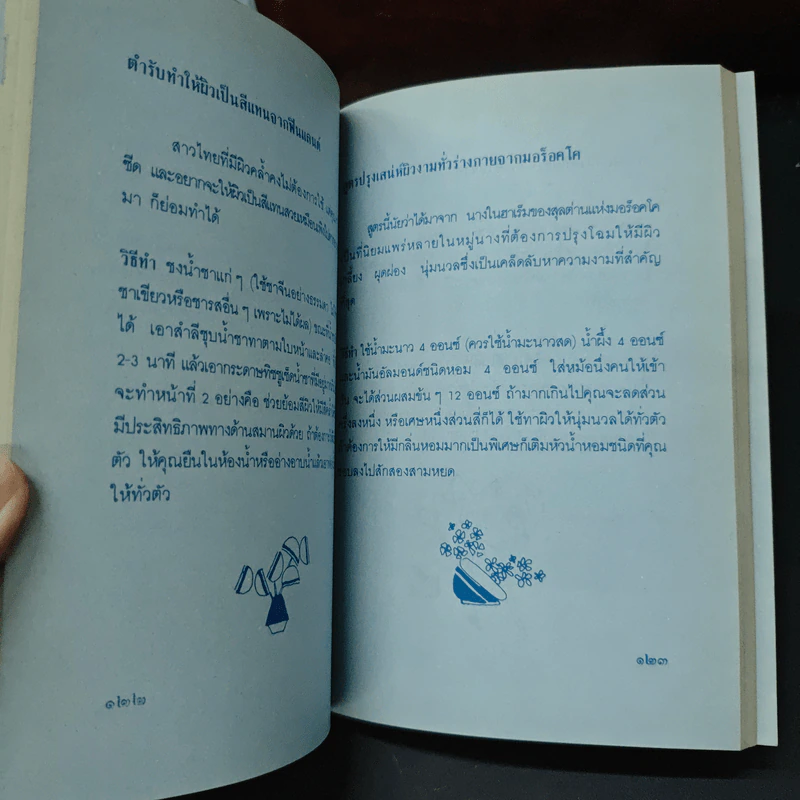 ตำรับทำให้ผิวเป็นสีแทนจากฟินแลนด์
สาวไทยที่มีผิวคล้ำคงไม่ต้องการใช้
ซีด และอยากจะให้ผิวเป็นสีแทนสวยเหมือน
มา ก็ย่อมทำได้
วิธีทำ ชงน้ำชาแก่ๆ (ใช้ชาจีนอย่างธรรมดา
ชาเขียวหรือชารสอื่นๆ เพราะไม่ได้ผล)
ได้ เอาสำลีชุบน้ำชาทาตามใบหน้าและลำคอ
2-3 นาที แล้วเอากระดาษทิชชูเช็ดน้ำชา
จะทำหน้าที่ 2 อย่างคือ ช่วยย้อมสีผิวให้
มีประสิทธิภาพทางด้านสมานผิวด้วย
ตัว ให้คุณยืนในห้องน้ำหรืออ่างอาบน้ำแล้ว
ให้ทั่วตัว
๑๒๒
ปรุงเสน่ห์ผิวงามทั่วร่างกายจากมอร็อคโค
สูตรนี้นัยว่าได้มาจาก นางในฮาเร็มของสุลต่านแห่งมอร็อคโค
เป็นที่นิยมแพร่หลายในหมู่นางที่ต้องการปรุงโฉมให้มีผิว
ผุดผ่อง นุ่มนวลซึ่งเป็นเคล็ดลับหาความงามที่สำคัญ
ใช้น้ำมะนาว 4 ออนซ์ (ควรใช้น้ำมะนาวสด) น้ำผึ้ง 4 ออนซ์
และน้ำมันอัลมอนด์ชนิดหอม 4 ออนซ์ ใส่หม้อนึ่งคนให้เข้า
จะได้ส่วนผสมข้นๆ 12 ออนซ์ ถ้ามากเกินไปคุณจะลดส่วน
ครึ่งหนึ่ง หรือเศษหนึ่งส่วนสี่ก็ได้ ใช้ทาผิวให้นุ่มนวลได้ทั่วตัว
ต้องการให้มีกลิ่นหอมมากเป็นพิเศษก็เติมหัวน้ำหอมชนิดที่คุณ
ชอบลงไปสักสองสามหยด
๑๒๓